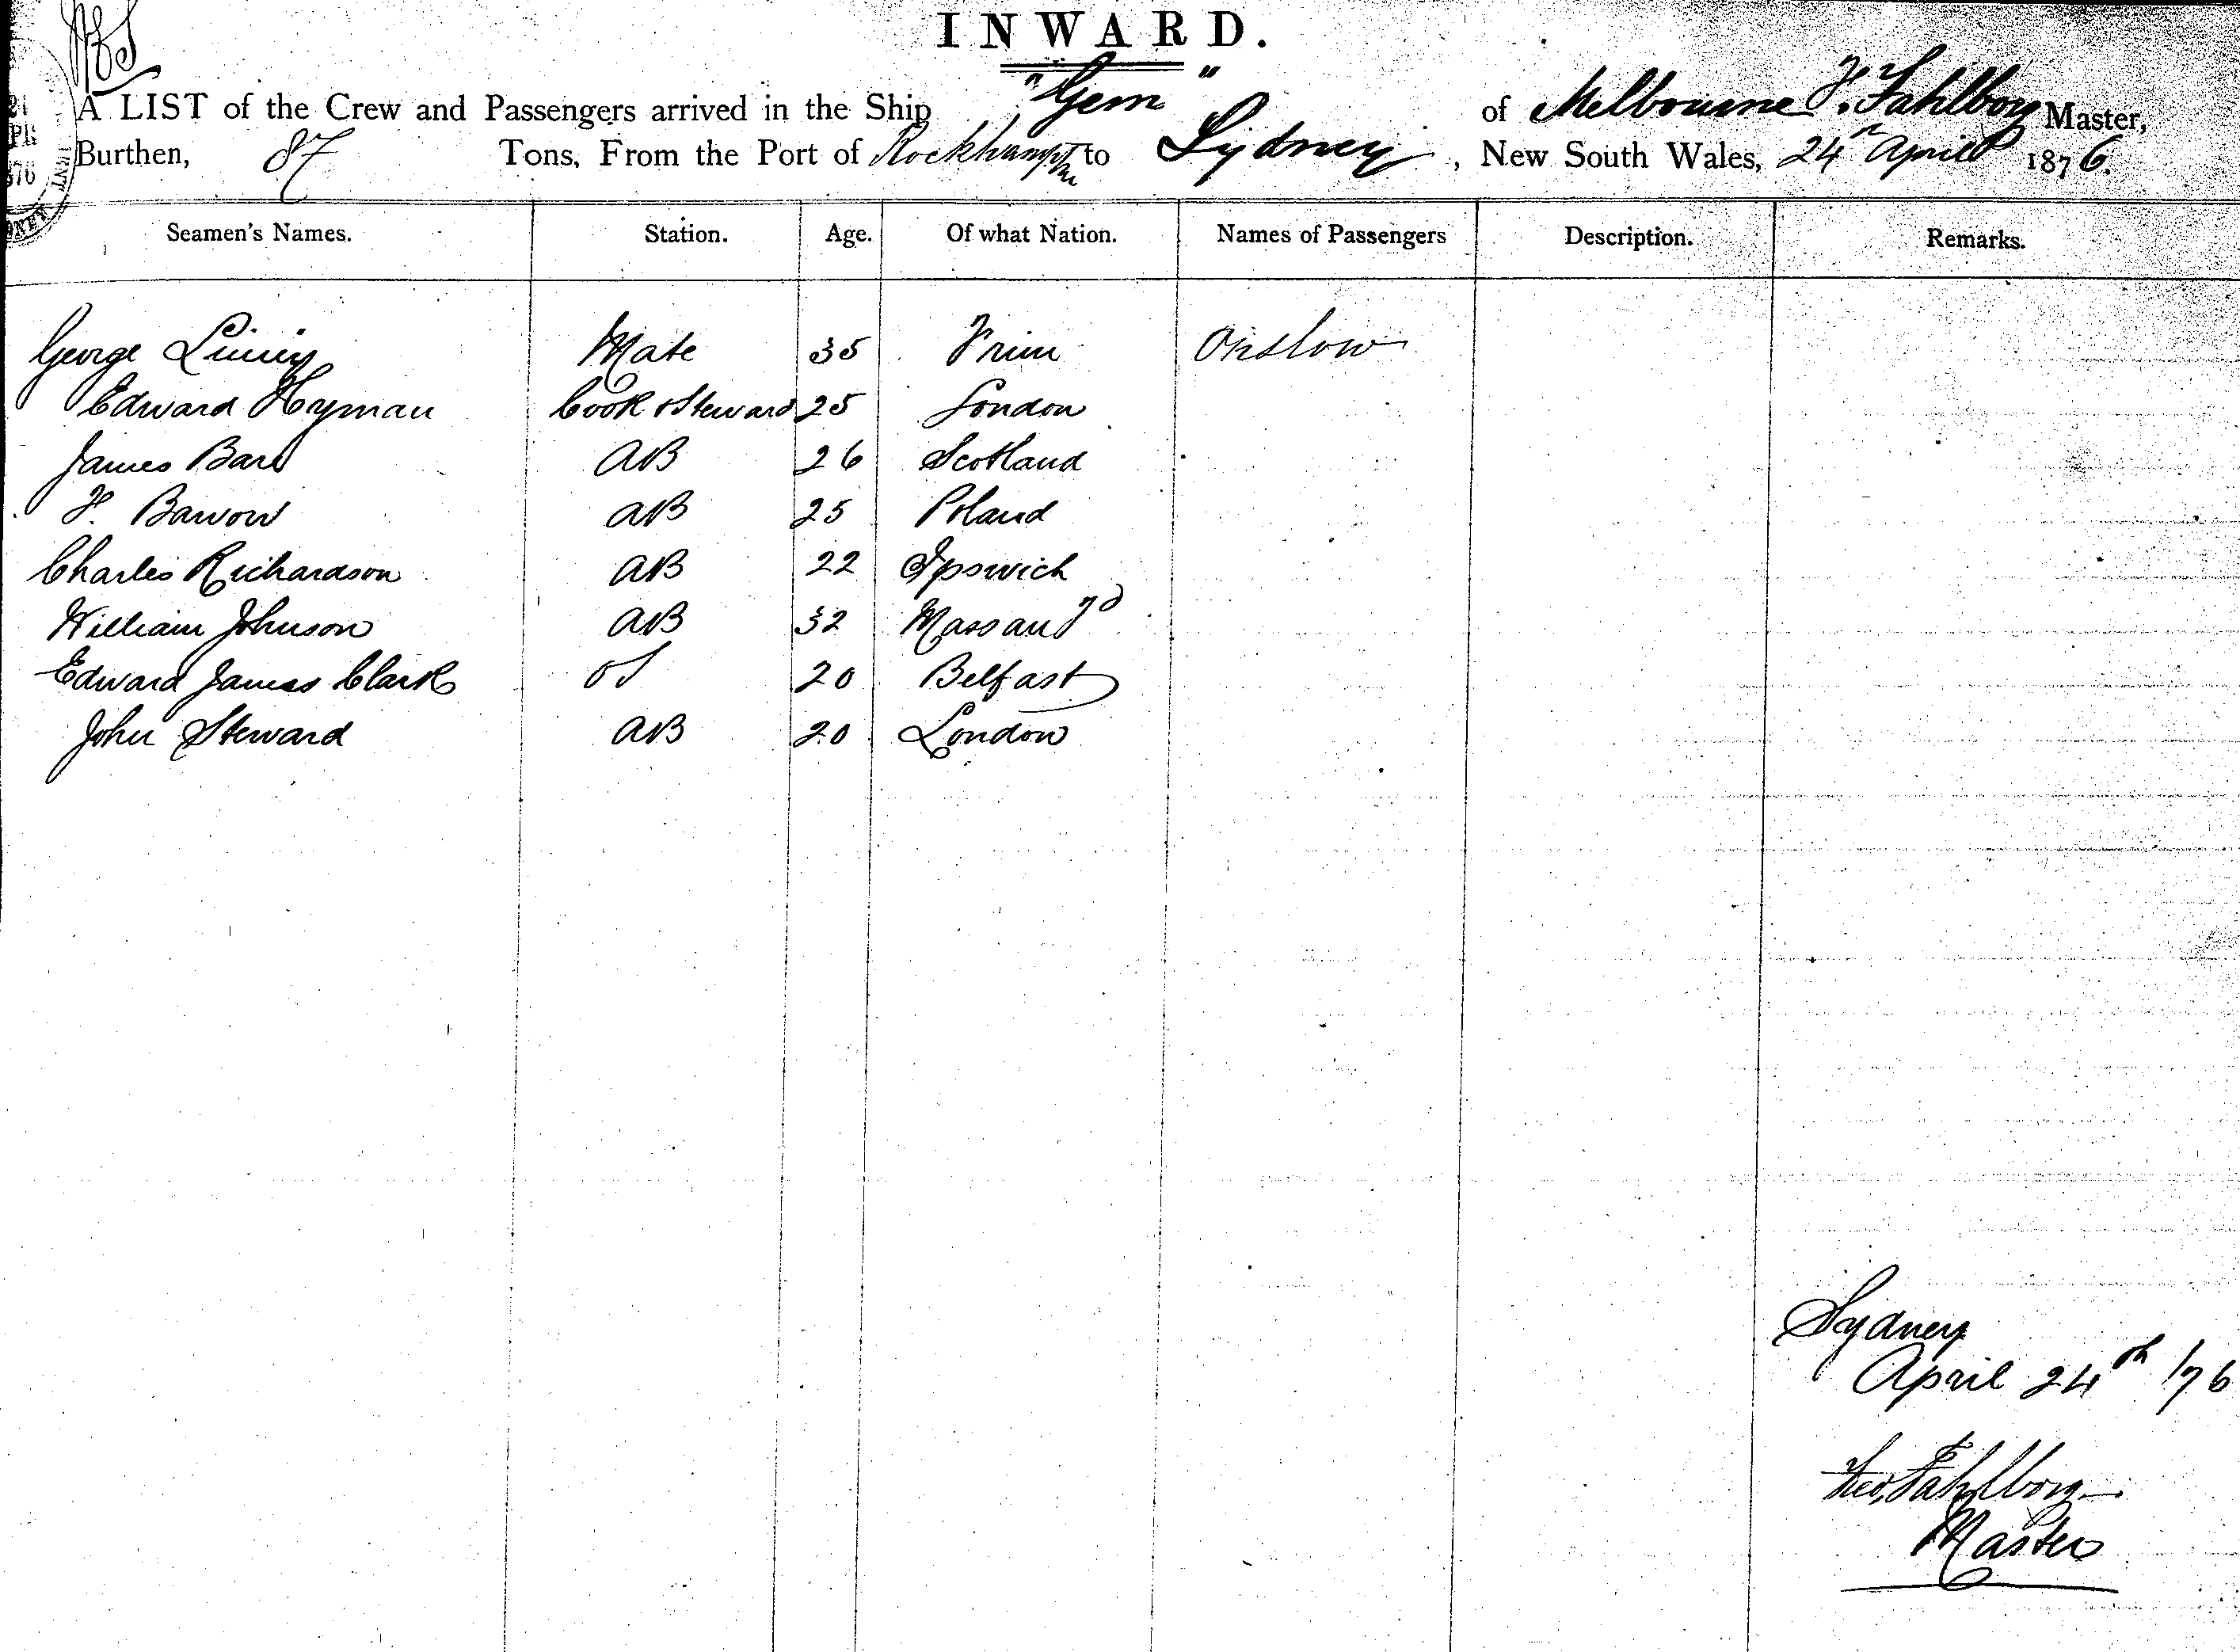 INWARD.
A LIST of the Crew and Passengers arrived in the Ship "Gem" of Melbourne F. Fahlborg Master,
Burthen, 87 Tons, From the Port of Rockhampton to Sydney, New South Wales, 24th April 1876.
Seamen's Names. Station. Age. Of what Nation. Names of Passengers Description. Remarks.
George Mate 35 Onslow
Edward Hyman Cook & Steward 25 London
James Barr AB 26 Scotland
AB 25 Poland
Charles Richardson AB 22 Ipswich
William Johnson AB 32
Edward James Clark OS 20 Belfast
John Steward AB 20 London
Sydney
April 24th /76
Fahlborg
Master